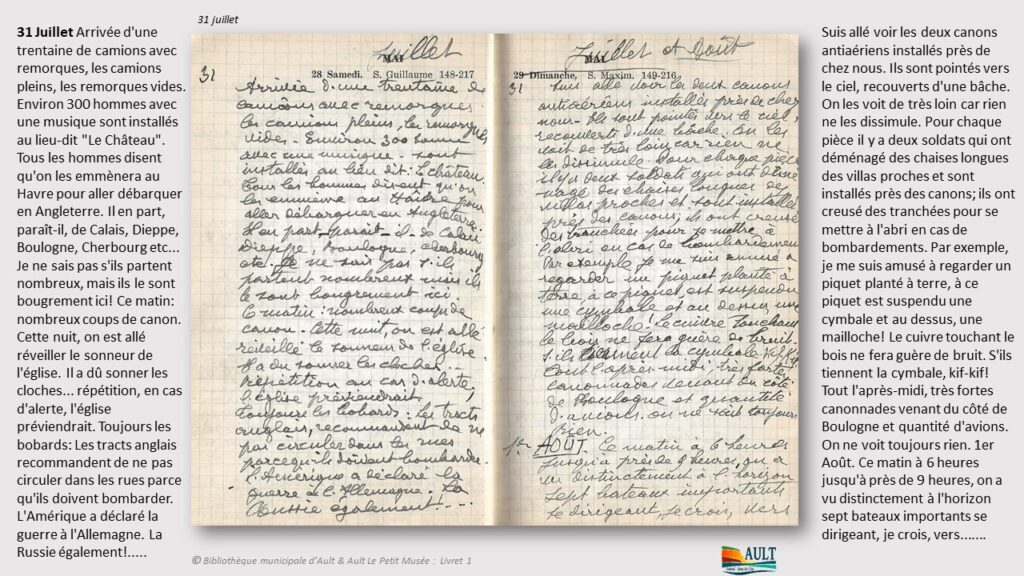 31 juillet
31 Juillet Arrivée d'une
trentaine de camions avec
remorques, les camions
pleins, les remorques vides.
Environ 300 hommes avec
une musique sont installés
au lieu-dit "Le Château".
Tous les hommes disent
qu'on les emmènera au
Havre pour aller débarquer
en Angleterre. Il en part,
paraît-il, de Calais, Dieppe,
Boulogne, Cherbourg etc...
Je ne sais pas s'ils partent
nombreux, mais ils le sont
bougrement ici! Ce matin:
nombreux coups de canon.
Cette nuit, on est allé
réveiller le sonneur de
l'église. Il a dû sonner les
cloches... répétition, en cas
d'alerte, l'église
préviendrait. Toujours les
bobards: Les tracts anglais
recommandent de ne pas
circuler dans les rues parce
qu'ils doivent bombarder.
L'Amérique a déclaré la
guerre à l'Allemagne. La
Russie également!.....
Juillet
MAI
28 Samedi. S. Guillaume 148-217
31
Arrivée d'une trentaine de
camions avec remorques
les camions pleins, les remorques
vides. Environ 300 homme
avec une musique sont
installés au lieu dit: Le château.
Tous les hommes disent qu'on
les emmène au Hâvre pour
aller débarquer en Angleterre.
Il en part, parait-il de Calais
Dieppe, Boulogne, Cherbourg
etc. Je ne sais pas s'ils
partent nombreux mais ils
le sont bougrement ici
Ce matin: nombreux coups de
canon. Cette nuit, on est allé
réveillé le sonneur de l'église
Il a du sonner les cloches...
Répétition au cas d'alerte
l'église préviendrait.
Toujours les bobards: Les tracts
anglais, recommandent de ne
pas circuler dans les rues
parcequ'ils doivent bombarder.
L'Amérique a déclaré la
guerre à l'Allemagne. La
Russie également!...
Juillet et Août
MAI
29 Dimanche, S. Maxim. 149-216
31
Suis allé voir les deux canons
antiaériens installés près de chez
nous. Ils sont pointés vers le ciel,
recouverts d'une bâche. On les
voit de très loin car rien ne
les dissimule. Pour chaque pièce
il y a deux soldats qui ont démé
nagé des chaises longues des
villas proches et sont installés
près des canons, ils ont creusé
des tranchées pour se mettre à
l'abri en cas de bombardement
Par exemple je me suis amusé à
regarder un piquet planté à
terre, à ce piquet est suspendu
une cymbale et au dessus une
mailloche! Le cuivre touchant
le bois ne fera guère de bruit.
S'ils tiennent la cymbale, kif kif!
Tout l'après-midi, très fortes
canonnades venant du côté
de Boulogne et quantité
d'avions. on ne voit toujours
rien.
1er AOUT. Ce matin à 6 heures
jusqu'à près de 9 heures, on a
vu distinctement à l'horizon
sept bateaux importants
se dirigeant, je crois, vers
Suis allé voir les deux canons
antiaériens installés près de
chez nous. Ils sont pointés vers
le ciel, recouverts d'une bâche.
On les voit de très loin car rien
ne les dissimule. Pour chaque
pièce il y a deux soldats qui ont
déménagé des chaises longues
des villas proches et sont
installés près des canons; ils ont
creusé des tranchées pour se
mettre à l'abri en cas de
bombardements. Par exemple,
je me suis amusé à regarder un
piquet planté à terre, à ce
piquet est suspendu une
cymbale et au dessus, une
mailloche! Le cuivre touchant le
bois ne fera guère de bruit. S'ils
tiennent la cymbale, kif-kif!
Tout l'après-midi, très fortes
canonnades venant du côté de
Boulogne et quantité d'avions.
On ne voit toujours rien. 1er
Août. Ce matin à 6 heures
jusqu'à près de 9 heures, on a
vu distinctement à l'horizon
sept bateaux importants se
dirigeant, je crois, vers.......
© Bibliothèque municipale d'Ault & Ault Le Petit Musée : Livret 1
AULT